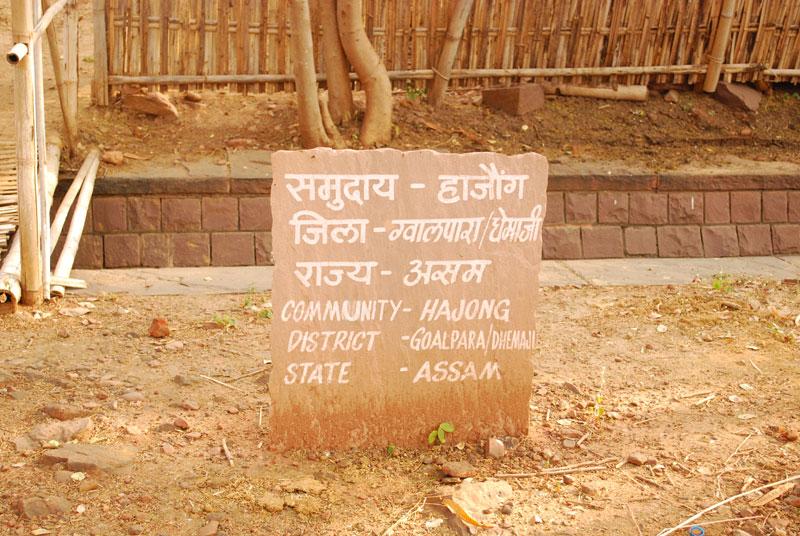 समुदाय - हाजौंग
जिला - ग्वालपारा/धेमाजी
राज्य - असम
COMMUNITY - HAJONG
DISTRICT - GOALPARA/DHEMAJI
STATE - ASSAM